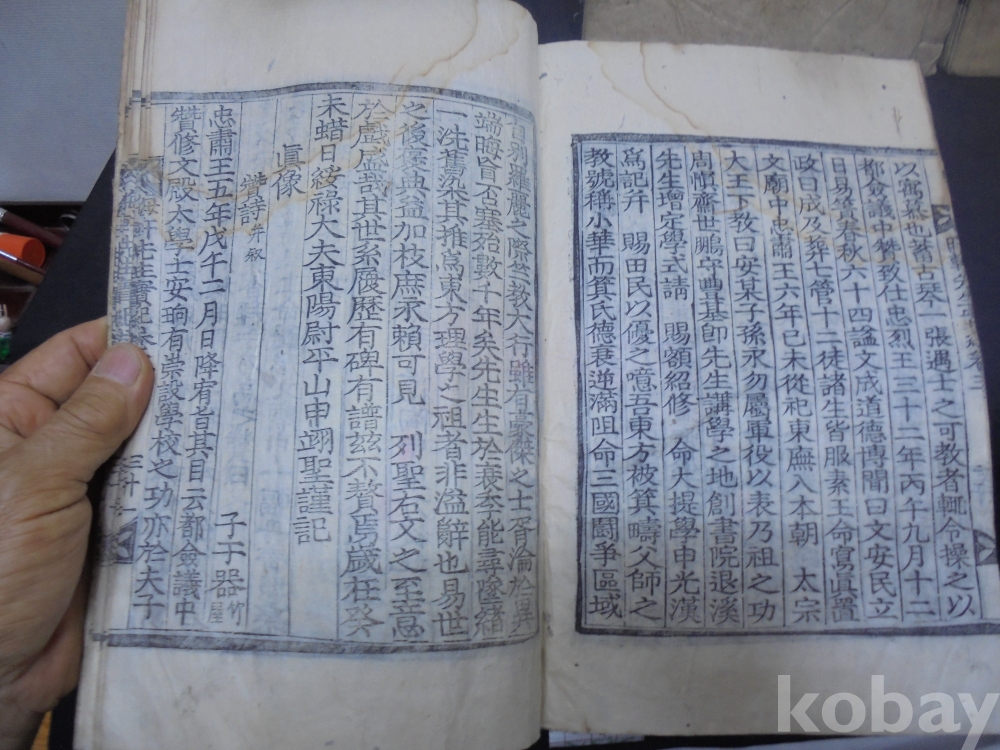 以寓慕也蓄古琴一張遇士之可教者輒令操之以
都僉議中贊致仕忠烈王三十二年丙午九月十二
日易簀春秋六十四諡文成道德博聞曰文安民立
政曰成及葬七管十二徒諸生皆服素王命寫眞置
文廟中忠肅王六年己未從祀東廡入本朝 太宗
大王下教曰安某子孫永勿屬軍役以表乃祖之功
周愼齋世鵬守豊基卽先生講學之地創書院退溪
先生增定學式請 賜額紹修 命大提學申光漢
爲記幷 賜田民以優之噫吾東方被箕疇父師之
教號稱小華而箕氏德衰逆滿阻命三國鬪爭區域
自別羅麗之際 教大行雖有豪傑之士胥淪於異
端晦盲否塞殆數千年矣先生生於衰季能尋墜緖
一洗舊染其推爲東方理學之祖者非溢辭也易世
之後褒典益加枝庶永賴可見 列聖右文之至意
於戲盛哉其世系履歷有碑有譜玆不贅焉歲在癸
未蜡日綏祿大夫東陽尉平山申翊聖謹記
眞像
贊詩 幷敍 子于器 竹屋
忠肅王五年戊午二月日降宥旨其目云都僉議中
贊修文殿太學士安珦有崇設學校之功亦於夫子
軒先生實紀卷 三十一
kobay